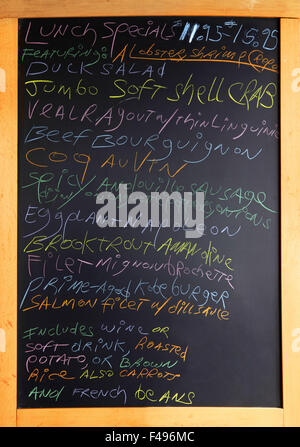 Lunch Specials $11.95-15.95
Featuring: A Lobster, Shrimp Crepe
Duck Salad
Jumbo Soft shell CRAB
Veal Ragout w/ thin Linguinie
Beef Bourguignon
Coq au Vin
Spicy Andouille Sausage
Eggplant Napoleon
Brook trout Amandine
Filet Mignon Brochette
Prime-Aged Kobe burger
Salmon filet w/ dill sauce
Includes wine or
soft drink, Roasted
potato, or Brown
Rice also carrots
And french beans
alamy
Image ID: F496MC
www.alamy.com